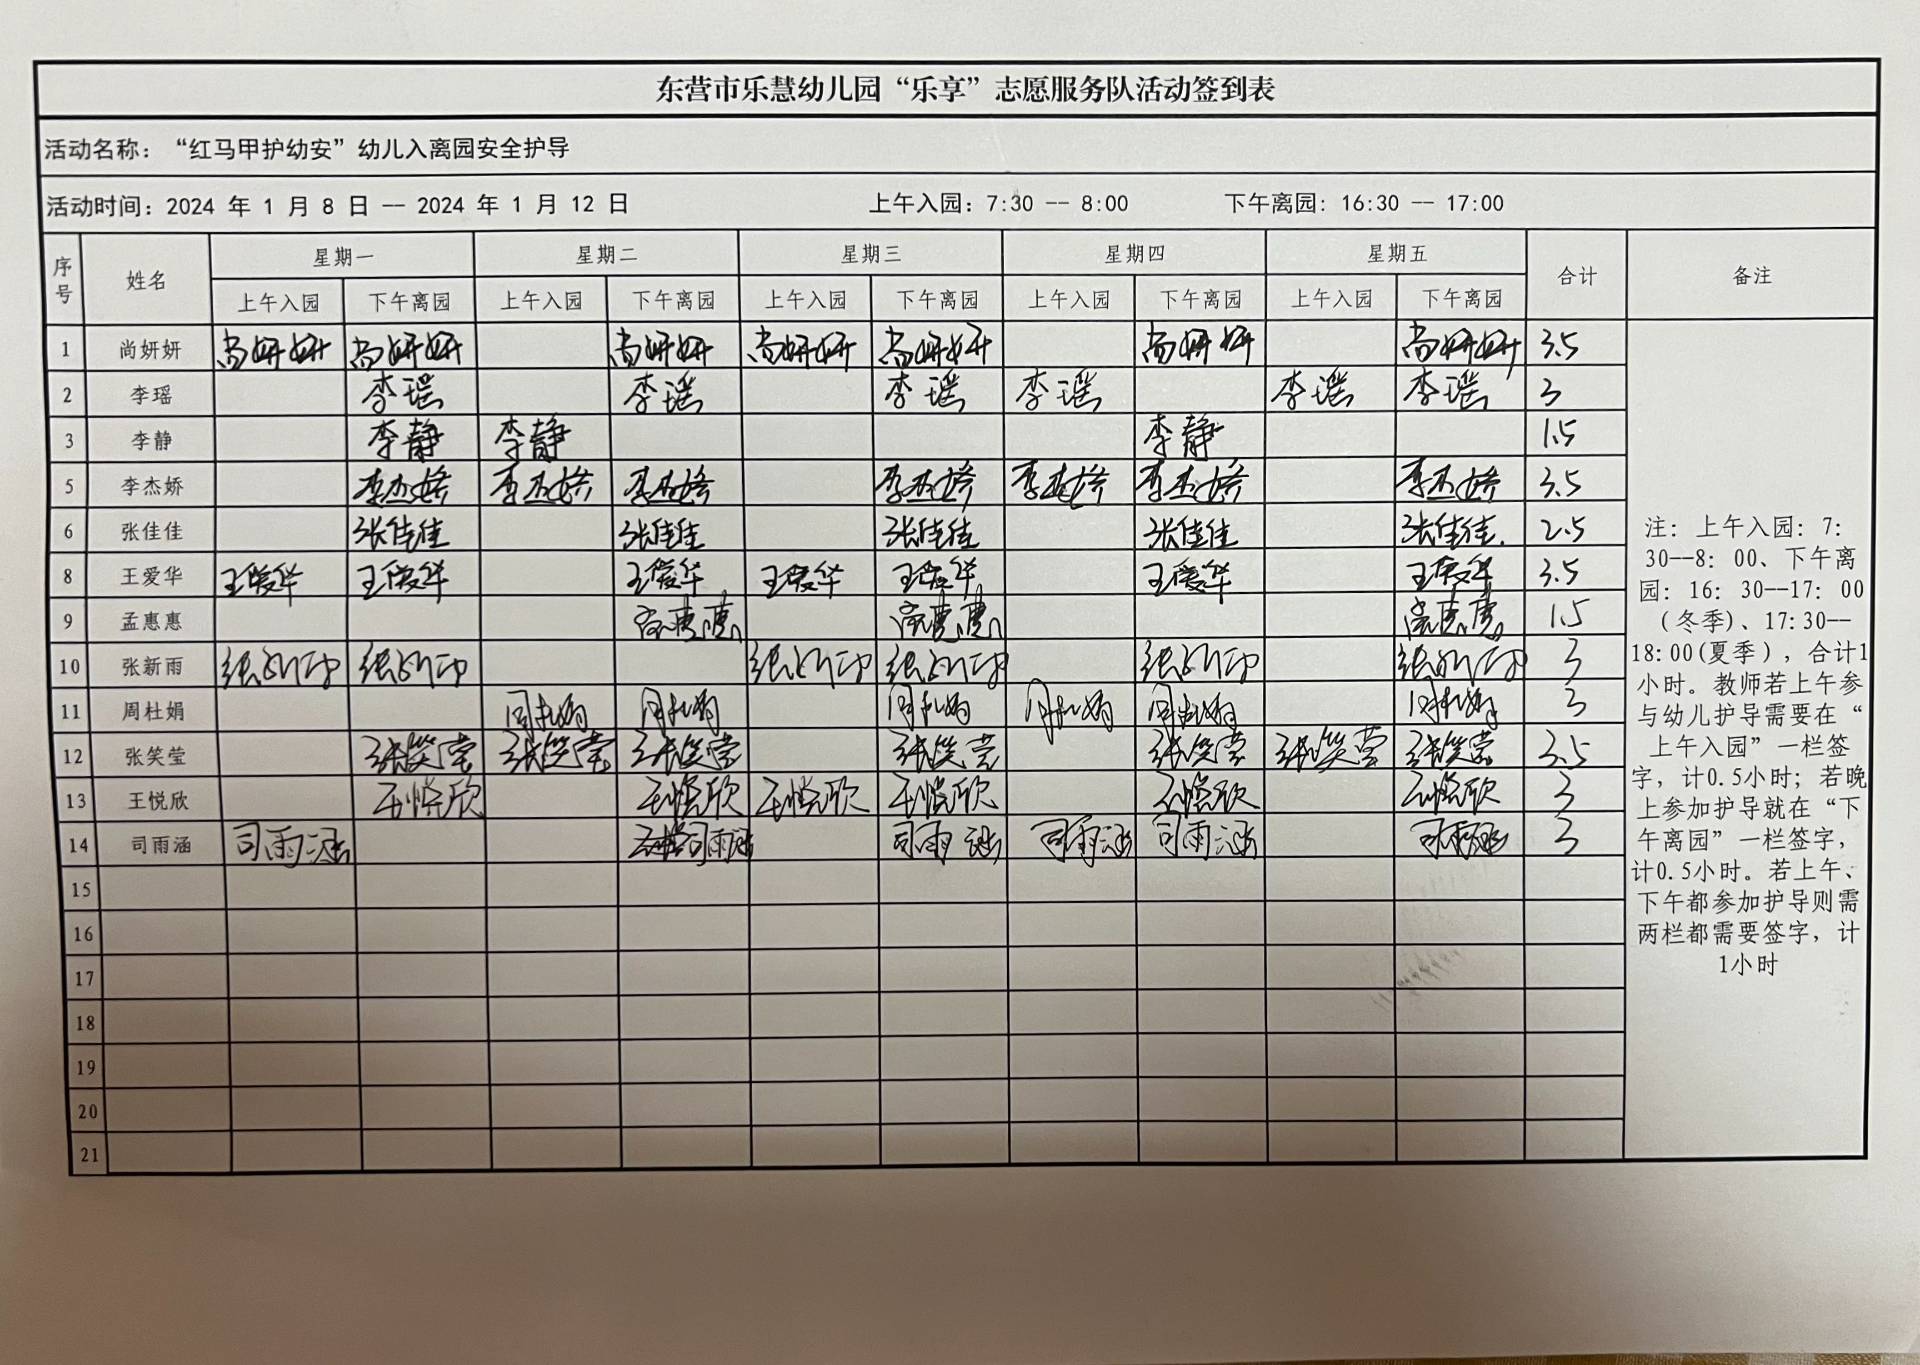 东营市乐慧幼儿园“乐享”志愿服务队活动签到表
活动名称：“红马甲护幼安”幼儿入离园安全护导
活动时间：2024 年 1 月 8 日 -- 2024 年 1 月 12 日 上午入园：7:30 -- 8:00 下午离园：16:30 -- 17:00
序号 姓名 星期一 星期二 星期三 星期四 星期五 合计 备注
上午入园 下午离园 上午入园 下午离园 上午入园 下午离园 上午入园 下午离园 上午入园 下午离园
1 尚妍妍 尚妍妍 尚妍妍 尚妍妍 尚妍妍 尚妍妍 尚妍妍 尚妍妍 3.5
2 李瑶 李瑶 李瑶 李瑶 李瑶 李瑶 李瑶 3
3 李静 李静 李静 李静 1.5
5 李杰娇 李杰娇 李杰娇 李杰娇 李杰娇 李杰娇 李杰娇 李杰娇 3.5
6 张佳佳 张佳佳 张佳佳 张佳佳 张佳佳 张佳佳 2.5
8 王爱华 王爱华 王爱华 王爱华 王爱华 王爱华 王爱华 王爱华 3.5
9 孟惠惠 孟惠惠 孟惠惠 孟惠惠 1.5
10 张新雨 张新雨 张新雨 张新雨 张新雨 张新雨 张新雨 3
11 周杜娟 周杜娟 周杜娟 周杜娟 周杜娟 周杜娟 周杜娟 3
12 张笑莹 张笑莹 张笑莹 张笑莹 张笑莹 张笑莹 张笑莹 张笑莹 3.5
13 王悦欣 王悦欣 王悦欣 王悦欣 王悦欣 王悦欣 王悦欣 3
14 司雨涵 司雨涵 司雨涵 司雨涵 司雨涵 司雨涵 司雨涵 3
15
16
17
18
19
20
21
注：上午入园：7:
30--8：00、下午离
园：16：30--17：00
(冬季)、17:30--
18:00(夏季），合计1
小时。教师若上午参
与幼儿护导需要在“
上午入园”一栏签
字，计0.5小时；若晚
上参加护导就在“下
午离园”一栏签字，
计0.5小时。若上午、
下午都参加护导则需
两栏都需要签字，计
1小时